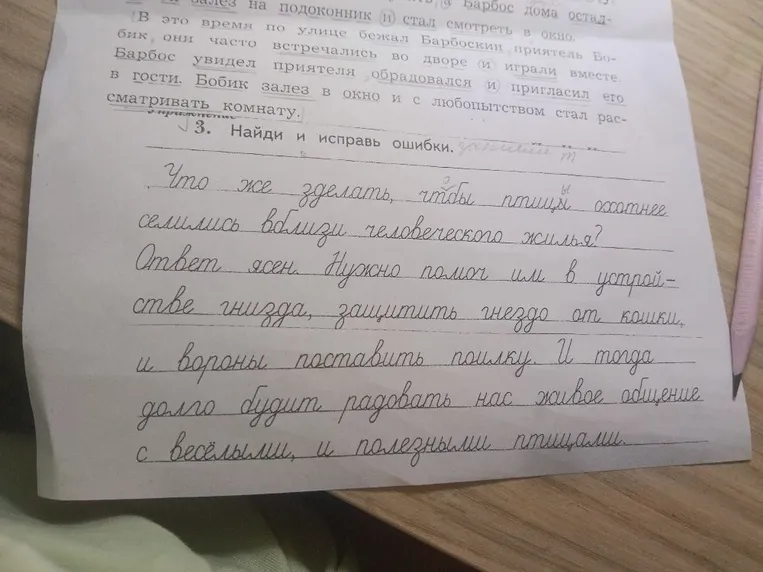 залез на подоконник и стал смотреть в окно.
Барбос дома остад-
В это время по улице бежал Барбоскин приятель Бо-
бик, они часто встречались во дворе и играли вместе.
Барбос увидел приятеля обрадовался и пригласил его
в гости. Бобик залез в окно и с любопытством стал рас-
сматривать комнату.
Упражнение
3. Найди и исправь ошибки.
Что же зделать, чтобы птицы охотнее
селились вблизи человеческого жилья?
Ответ ясен. Нужно помоч им в устрой-
стве гнизда, защитить гнездо от кошки,
и вороны поставить поилку. И тогда
долго будит радовать нас живое общение
с весёлыми, и полезными птицами.